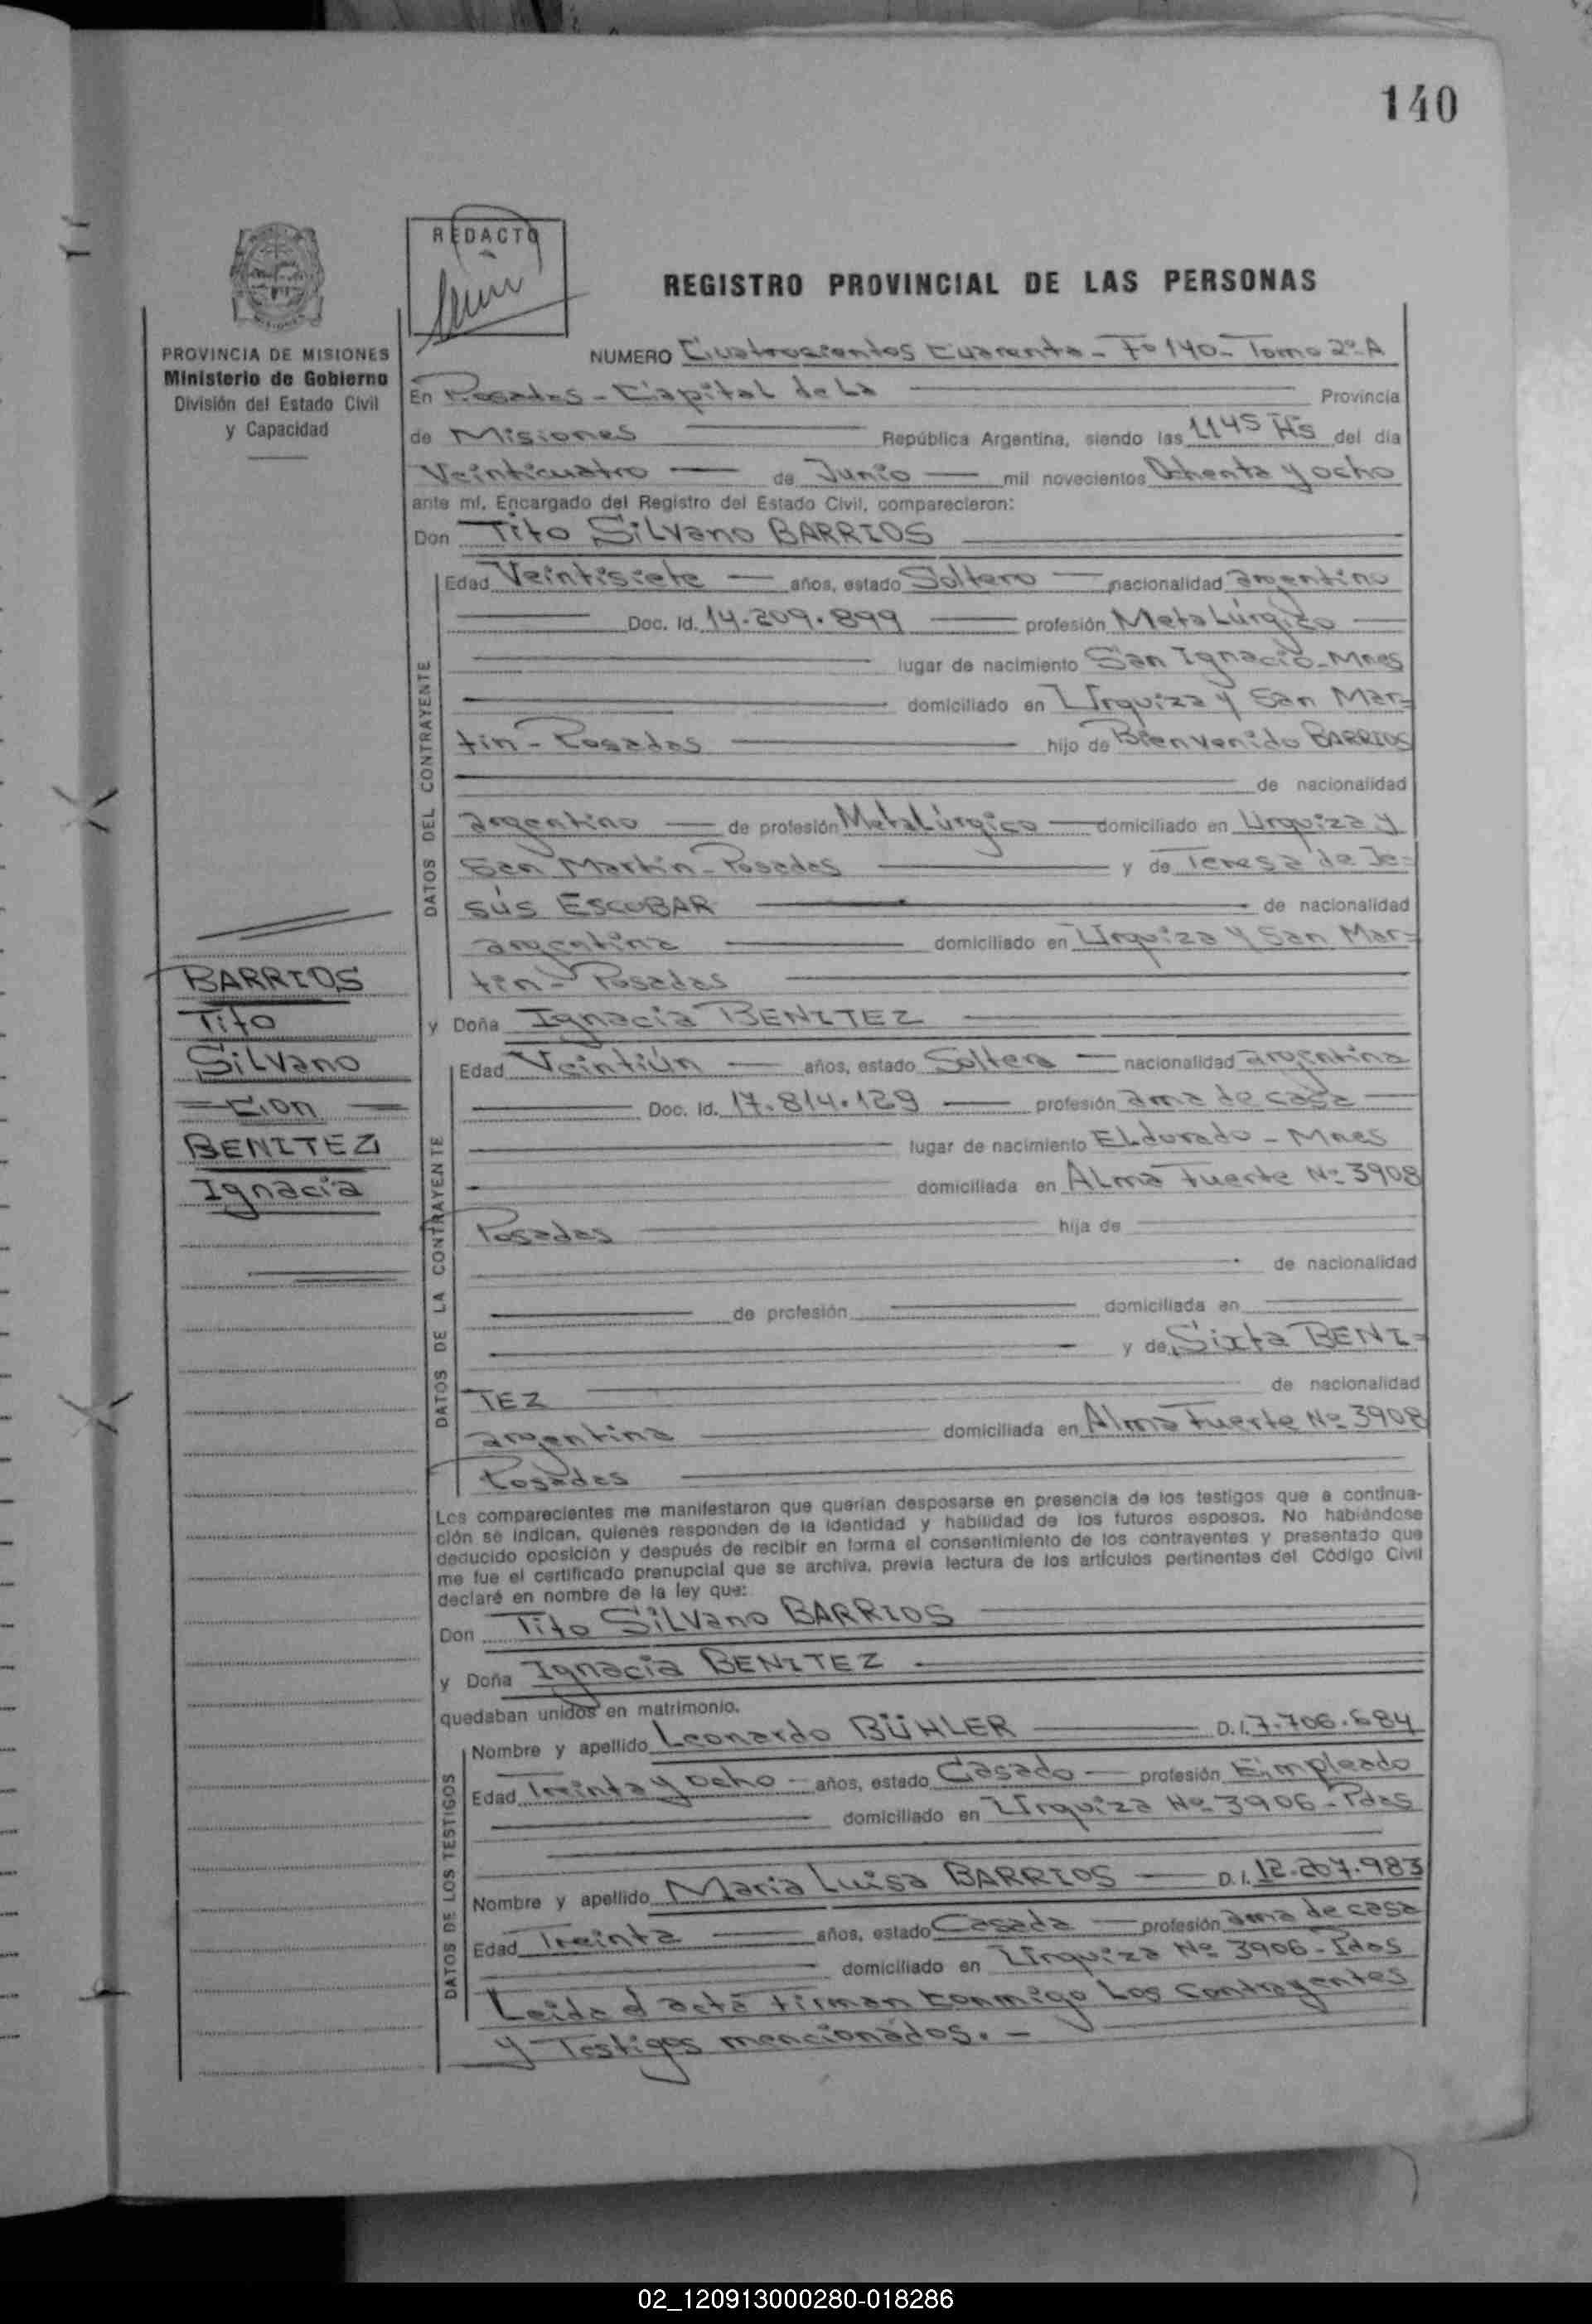 140
REDACTO
REGISTRO PROVINCIAL DE LAS PERSONAS
PROVINCIA DE MISIONES
Ministerio de Gobierno
División del Estado Civil
y Capacidad
NUMERO Cuatrocientos Cuarenta - Fº 140 - Tomo 2º A
En Posadas - Capital de La Provincia
de Misiones República Argentina, siendo las 1145 Hs del día
Veinticuatro de Junio mil novecientos Ochenta y ocho
ante mí, Encargado del Registro del Estado Civil, comparecieron:
Don Tito Silvano BARRIOS
DATOS DEL CONTRAYENTE
Edad Veintisiete años, estado Soltero nacionalidad argentino
Doc. Id. 14.209.899 profesión Metalúrgico
lugar de nacimiento San Ignacio - Mnes
domiciliado en Urquiza y San Mar=
tin - Posadas hijo de Bienvenido BARRIOS
de nacionalidad
argentino de profesión Metalúrgico domiciliado en Urquiza y
San Martín - Posadas y de Teresa de Je=
sús ESCOBAR de nacionalidad
argentina domiciliado en Urquiza y San Mar=
tin - Posadas
BARRIOS
Tito
Silvano
= Con =
BENITEZ
Ignacia
y Doña Ignacia BENITEZ
DATOS DE LA CONTRAYENTE
Edad Veintiún años, estado Soltera nacionalidad argentina
Doc. Id. 17.814.129 profesión ama de casa
lugar de nacimiento Eldorado - Mnes
domiciliada en Alma Fuerte Nº 3908
Posadas hija de
de nacionalidad
de profesión domiciliada en
y de Sixta BENI=
TEZ de nacionalidad
argentina domiciliada en Alma Fuerte Nº 3908
Posadas
Los comparecientes me manifestaron que querían desposarse en presencia de los testigos que a continua-
ción se indican, quienes responden de la identidad y habilidad de los futuros esposos. No habiéndose
deducido oposición y después de recibir en forma el consentimiento de los contrayentes y presentado que
me fue el certificado prenupcial que se archiva, previa lectura de los artículos pertinentes del Código Civil
declaré en nombre de la ley que:
Don Tito Silvano BARRIOS
y Doña Ignacia BENITEZ
quedaban unidos en matrimonio.
DATOS DE LOS TESTIGOS
Nombre y apellido Leonardo BÜHLER D.I. 7.706.684
Edad Treinta y ocho años, estado Casado profesión Empleado
domiciliado en Urquiza Nº 3906 - Pdas
Nombre y apellido Maria Luisa BARRIOS D.I. 12.207.983
Edad Treinta años, estado Casada profesión ama de casa
domiciliado en Urquiza Nº 3906 - Pdas
Leida el acta firman conmigo Los Contrayentes
y Testigos mencionados. -
02_120913000280-018286